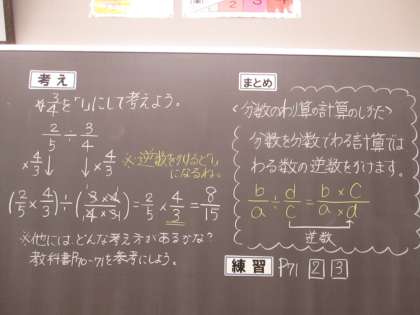 考え
☆3/4を「1」にして考えよう。
2/5 ÷ 3/4
×4/3↓ ↓×4/3
※逆数をかけると「1」
になるね。
(2/5×4/3)÷(3×4/4×3)=2/5×4/3=8/15
※他には、どんな考え方があるかな?
教科書P70~71を参考にしよう。
まとめ
<分数のわり算の計算のしかた>
分数を分数でわる計算では
わる数の逆数をかけます。
b/a÷d/c=b×c/a×d
逆数
練習 P71 2 3